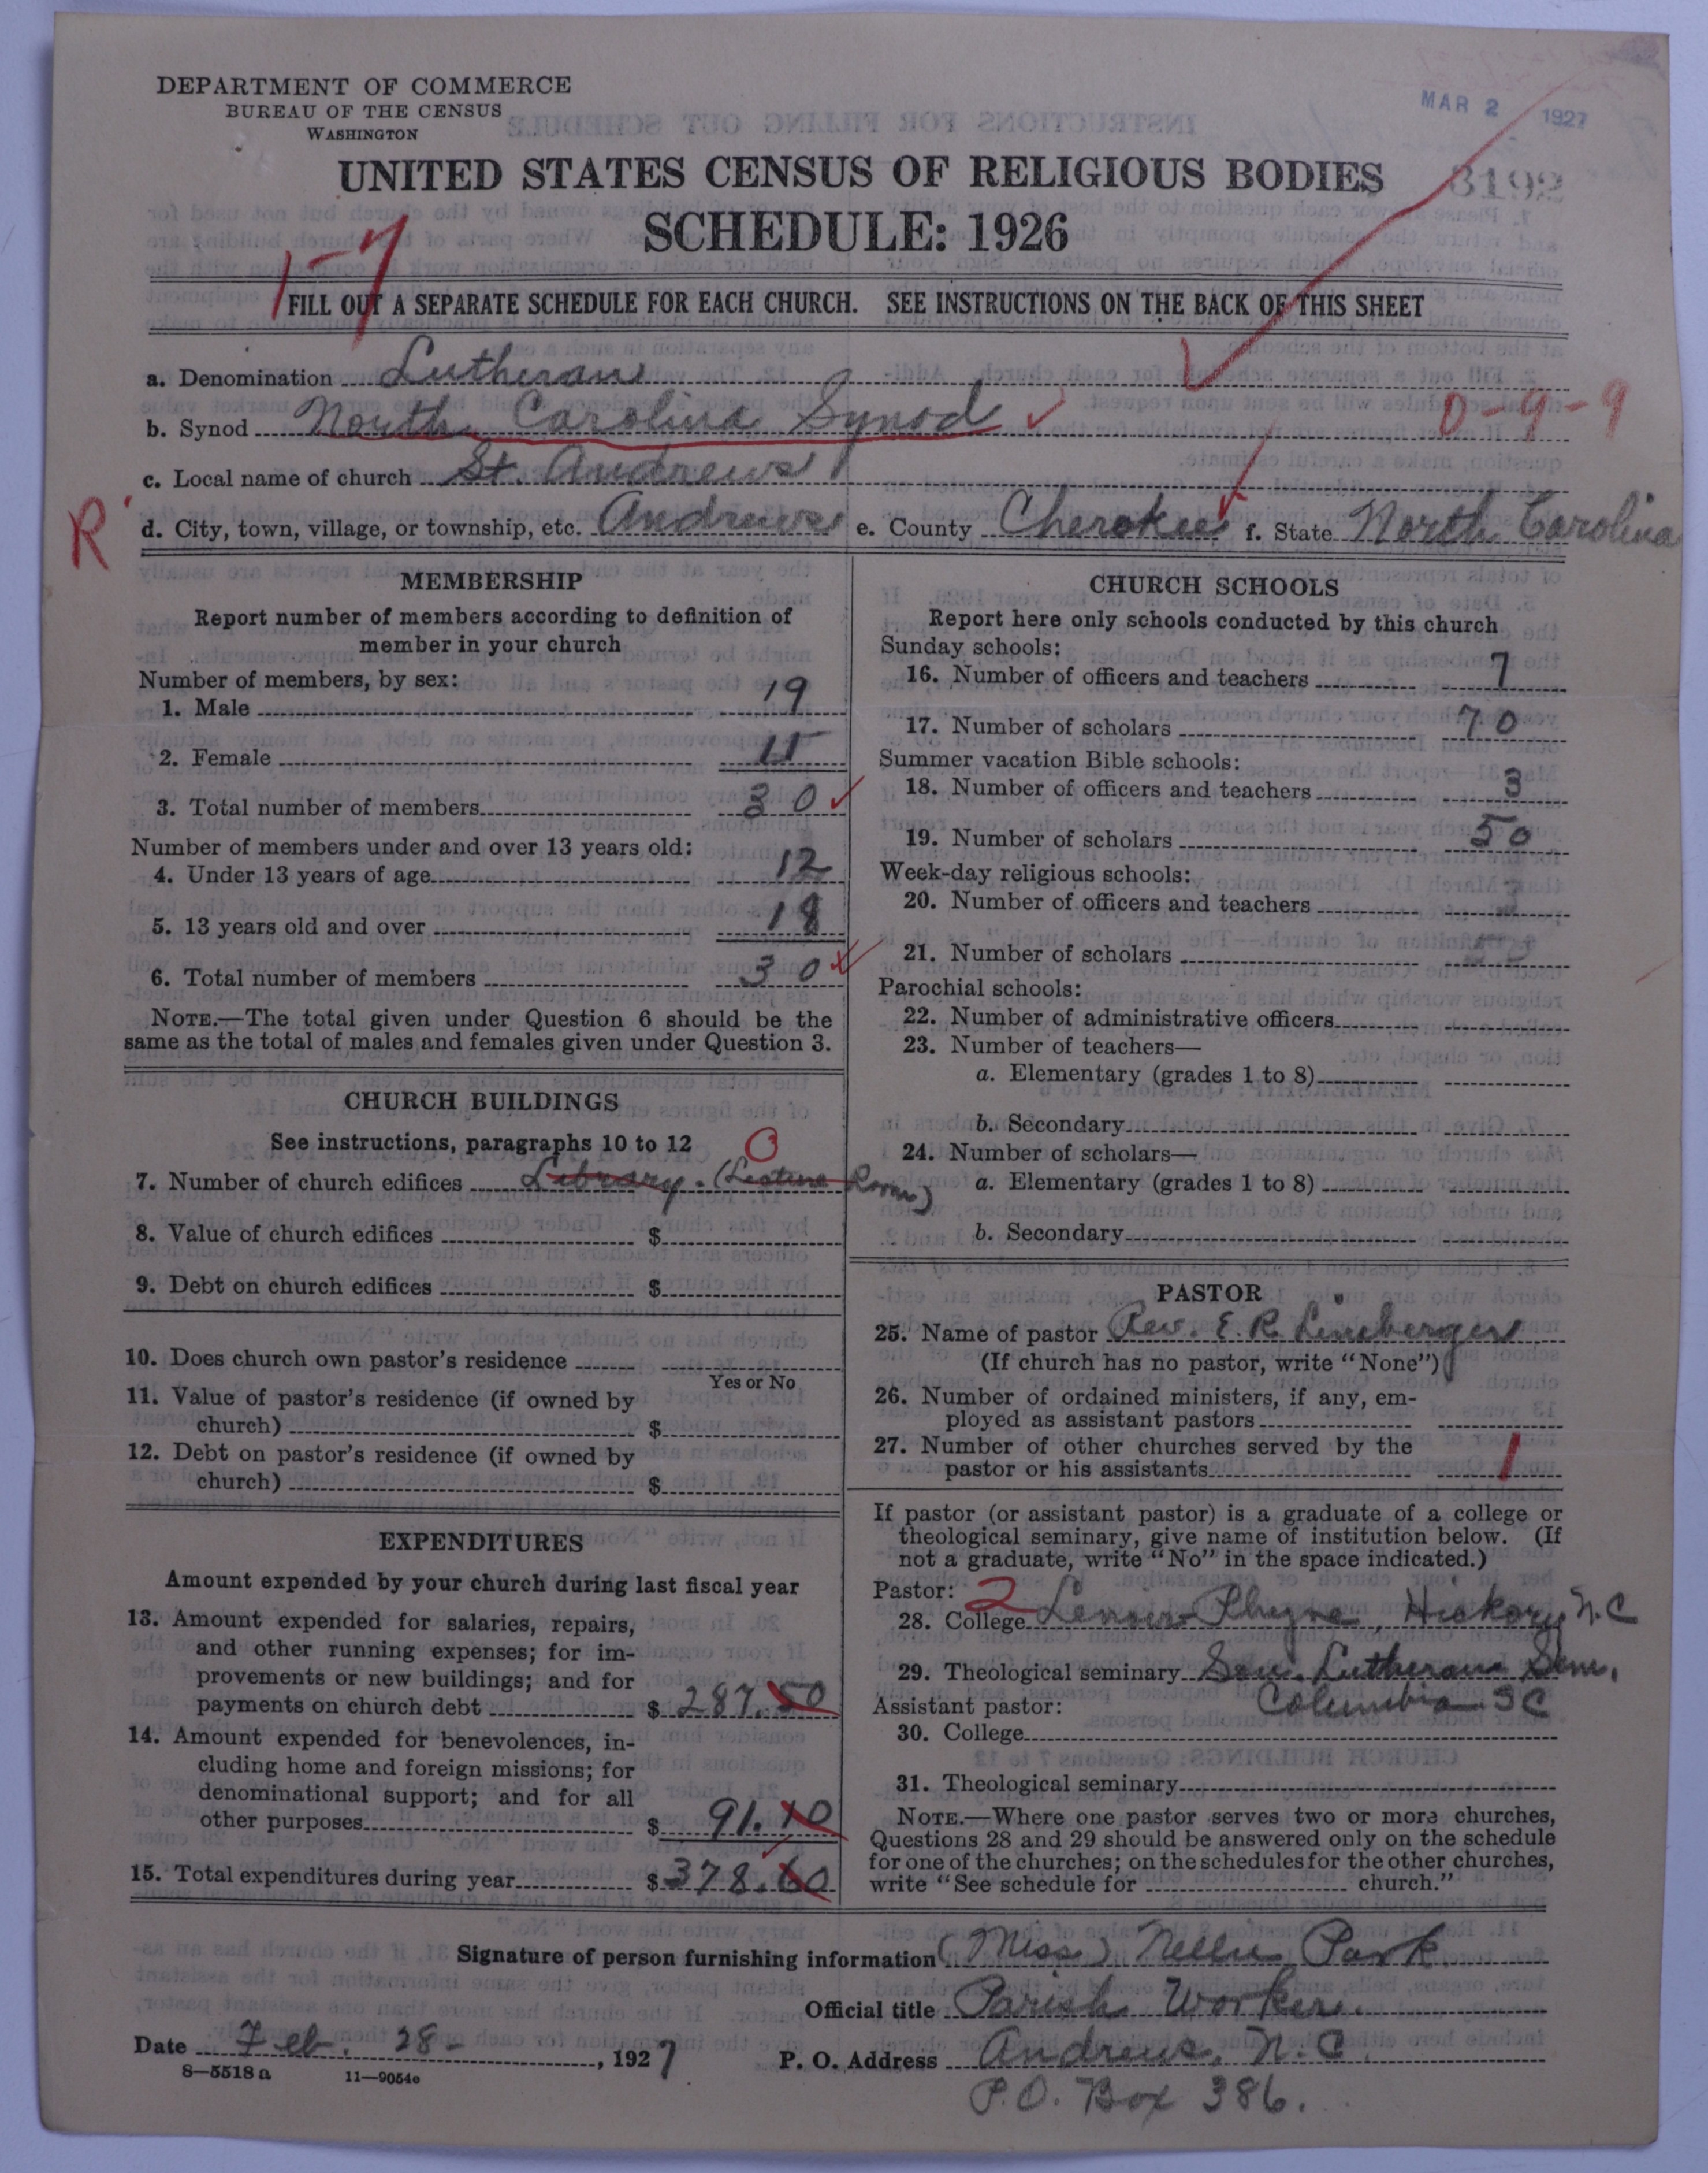 DEPARTMENT OF COMMERCE
BUREAU OF THE CENSUS
WASHINGTON
MAR 2 1927
8192
UNITED STATES CENSUS OF RELIGIOUS BODIES
SCHEDULE: 1926
1-7
FILL OUT A SEPARATE SCHEDULE FOR EACH CHURCH. SEE INSTRUCTIONS ON THE BACK OF THIS SHEET
a. Denomination Lutheran
b. Synod North Carolina Synod 0-9-9
c. Local name of church St. Andrews
R
d. City, town, village, or township, etc. Andrews e. County Cherokee f. State North Carolina
MEMBERSHIP
Report number of members according to definition of
member in your church
Number of members, by sex:
1. Male 19
2. Female 11
3. Total number of members 30
Number of members under and over 13 years old:
4. Under 13 years of age 12
5. 13 years old and over 18
6. Total number of members 30
NOTE.—The total given under Question 6 should be the
same as the total of males and females given under Question 3.
CHURCH BUILDINGS
See instructions, paragraphs 10 to 12
0
7. Number of church edifices Library. (Lecture Room)
8. Value of church edifices $
9. Debt on church edifices $
10. Does church own pastor's residence
Yes or No
11. Value of pastor's residence (if owned by
church) $
12. Debt on pastor's residence (if owned by
church) $
EXPENDITURES
Amount expended by your church during last fiscal year
13. Amount expended for salaries, repairs,
and other running expenses; for im-
provements or new buildings; and for
payments on church debt $ 287.50
14. Amount expended for benevolences, in-
cluding home and foreign missions; for
denominational support; and for all
other purposes $ 91.10
15. Total expenditures during year $ 378.60
CHURCH SCHOOLS
Report here only schools conducted by this church
Sunday schools:
16. Number of officers and teachers 7
17. Number of scholars 70
Summer vacation Bible schools:
18. Number of officers and teachers 3
19. Number of scholars 50
Week-day religious schools:
20. Number of officers and teachers
21. Number of scholars
Parochial schools:
22. Number of administrative officers
23. Number of teachers—
a. Elementary (grades 1 to 8)
b. Secondary
24. Number of scholars—
a. Elementary (grades 1 to 8)
b. Secondary
PASTOR
25. Name of pastor Rev. E. R. Lineberger
(If church has no pastor, write "None")
26. Number of ordained ministers, if any, em-
ployed as assistant pastors
27. Number of other churches served by the
pastor or his assistants 1
If pastor (or assistant pastor) is a graduate of a college or
theological seminary, give name of institution below. (If
not a graduate, write "No" in the space indicated.)
Pastor: 2
28. College Lenoir-Rhyne, Hickory, N.C
29. Theological seminary Sou. Lutheran Sem.
Columbia SC
Assistant pastor:
30. College
31. Theological seminary
NOTE.—Where one pastor serves two or more churches,
Questions 28 and 29 should be answered only on the schedule
for one of the churches; on the schedules for the other churches,
write "See schedule for church."
Signature of person furnishing information (Miss) Nellie Park
Official title Parish Worker.
Date Feb. 28- , 1927
P. O. Address Andrews, N.C.
8—5518 a 11—9054c
P.O. Box 386.